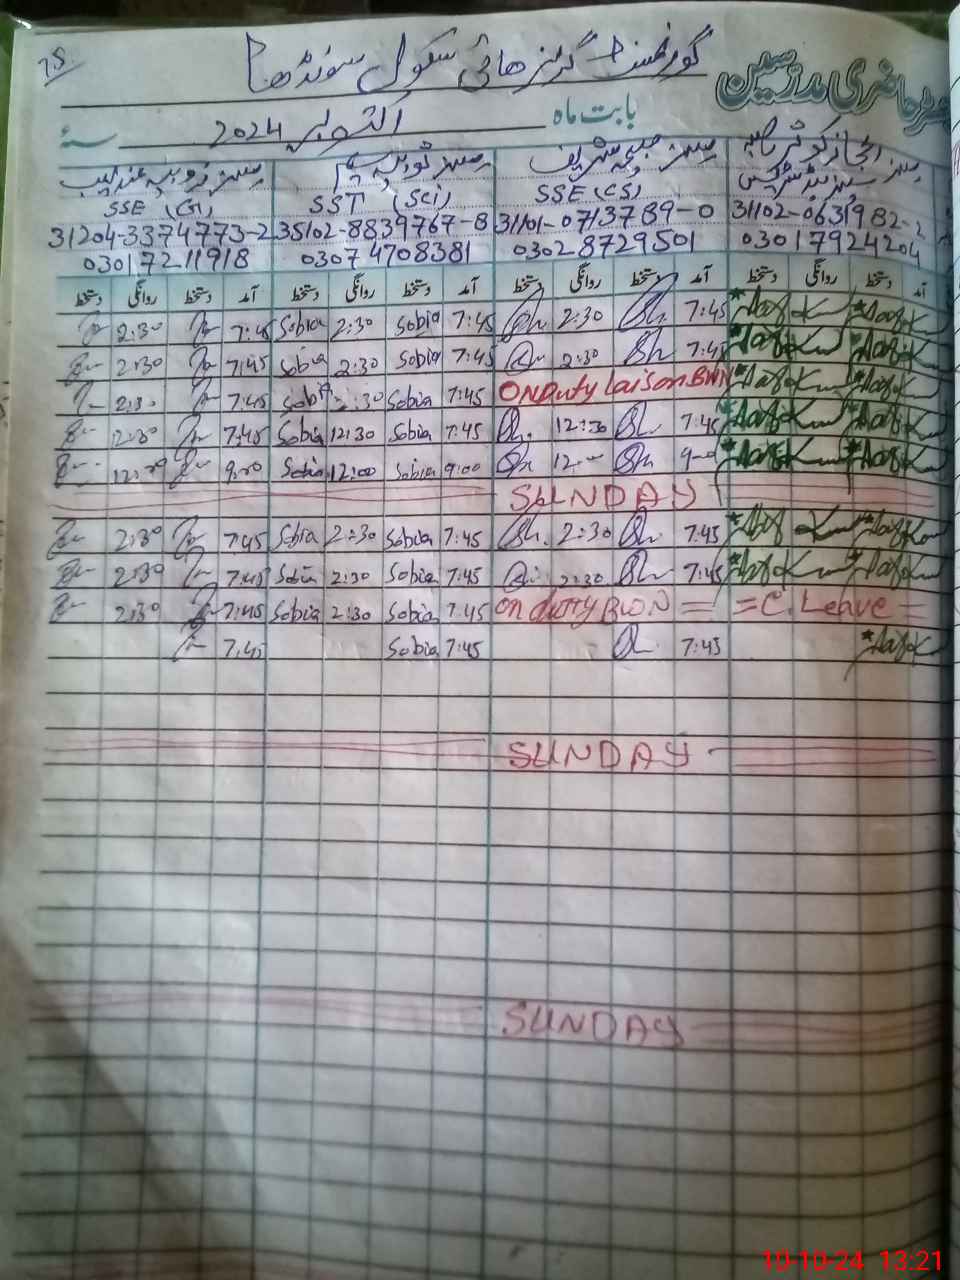 75
گورنمنٹ گرلز ہائی سکول سونڈھا
رجسٹر حاضری مدرسین
بابت ماہ اکتوبر 2024 سنہ
مسز اعجاز کوثر صاحبہ مسز صبیحہ شریف مسز ثوبیہ مسز زوبیہ عندلیب
سینئر ہیڈمسٹریس SSE (CS) SST (Sci) SSE
31102-0631982-2 31101-0713789-0 35102-8839767-8 31204-3374773-2
03017924204 03028729501 03074708381 03017211918
آمد دستخط روانگی دستخط آمد دستخط روانگی دستخط آمد دستخط روانگی دستخط آمد دستخط روانگی دستخط
2:30 7:45 Sobia 2:30 Sobia 7:45 2:30 7:45
2:30 7:45 Sobia 2:30 Sobia 7:45 2:30 7:45
2:30 7:45 Sobia 2:30 Sobia 7:45 On Duty Laison BWN
12:30 7:45 Sobia 12:30 Sobia 7:45 12:30 7:45
9:00 Sobia 12:00 Sobia 9:00
SUNDAY
2:30 7:45 Sobia 2:30 Sobia 7:45 2:30 7:45
2:30 7:45 Sobia 2:30 Sobia 7:45 2:30 7:45
2:30 7:45 Sobia 2:30 Sobia 7:45 on duty BWN = = C. Leave =
7:45 Sobia 7:45 7:45
SUNDAY
SUNDAY
10-10-24 13:21